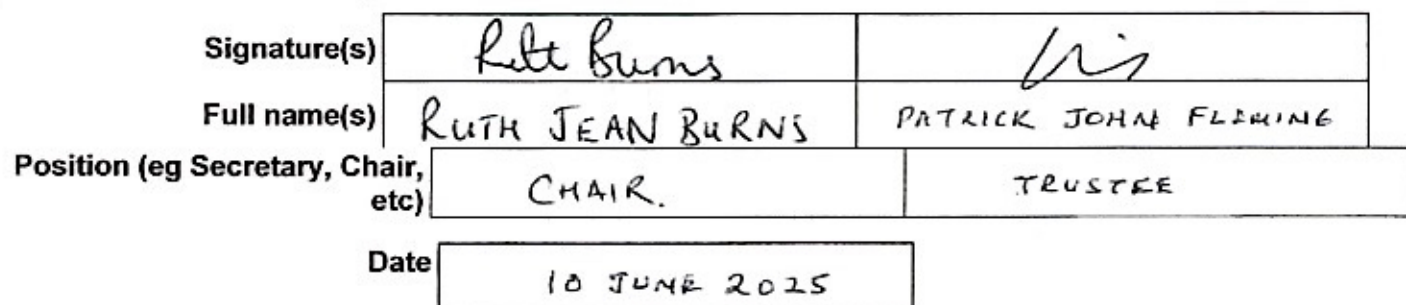 Signature(s) Ruth Burns
Full name(s) RUTH JEAN BURNS PATRICK JOHN FLEMING
Position (eg Secretary, Chair,
etc) CHAIR. TRUSTEE
Date 10 JUNE 2025